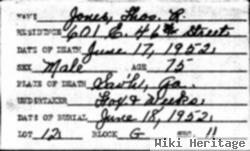 NAME Jones, Thos. R.
RESIDENCE 601 E. 46th Street
DATE OF DEATH June 17, 1952
SEX Male AGE 75
PLACE OF DEATH Sav'h, Ga.
UNDERTAKER Fox & Weeks
DATE OF BURIAL June 18, 1952
LOT 12 BLOCK G SEC. 11
Wiki Heritage